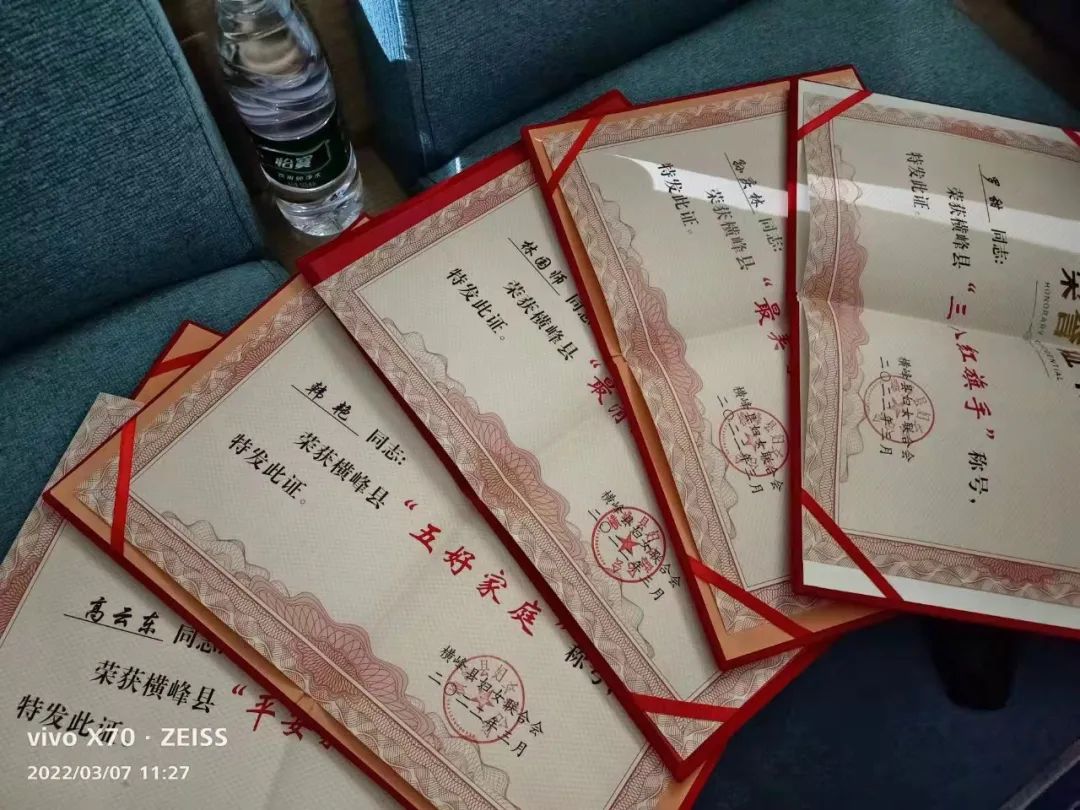 罗甜 同志:
荣获横峰县“三八红旗手”称号,
特发此证。
横峰县妇女联合会
二〇二二年三月
HONORARY CREDENTIAL
同志:
荣获横峰县“最美
特发此证。
横峰县妇女联合会
二〇二二年三月
林国师 同志
荣获横峰县“最
特发此证。
横峰县妇女联合会
二〇二二年三月
韩艳 同志:
荣获横峰县“五好家庭”称号,
特发此证。
横峰县妇女联合会
二〇二二年三月
高云东 同志
荣获横峰县“平安
特发此证。
vivo X70 · ZEISS
2022/03/07 11:27